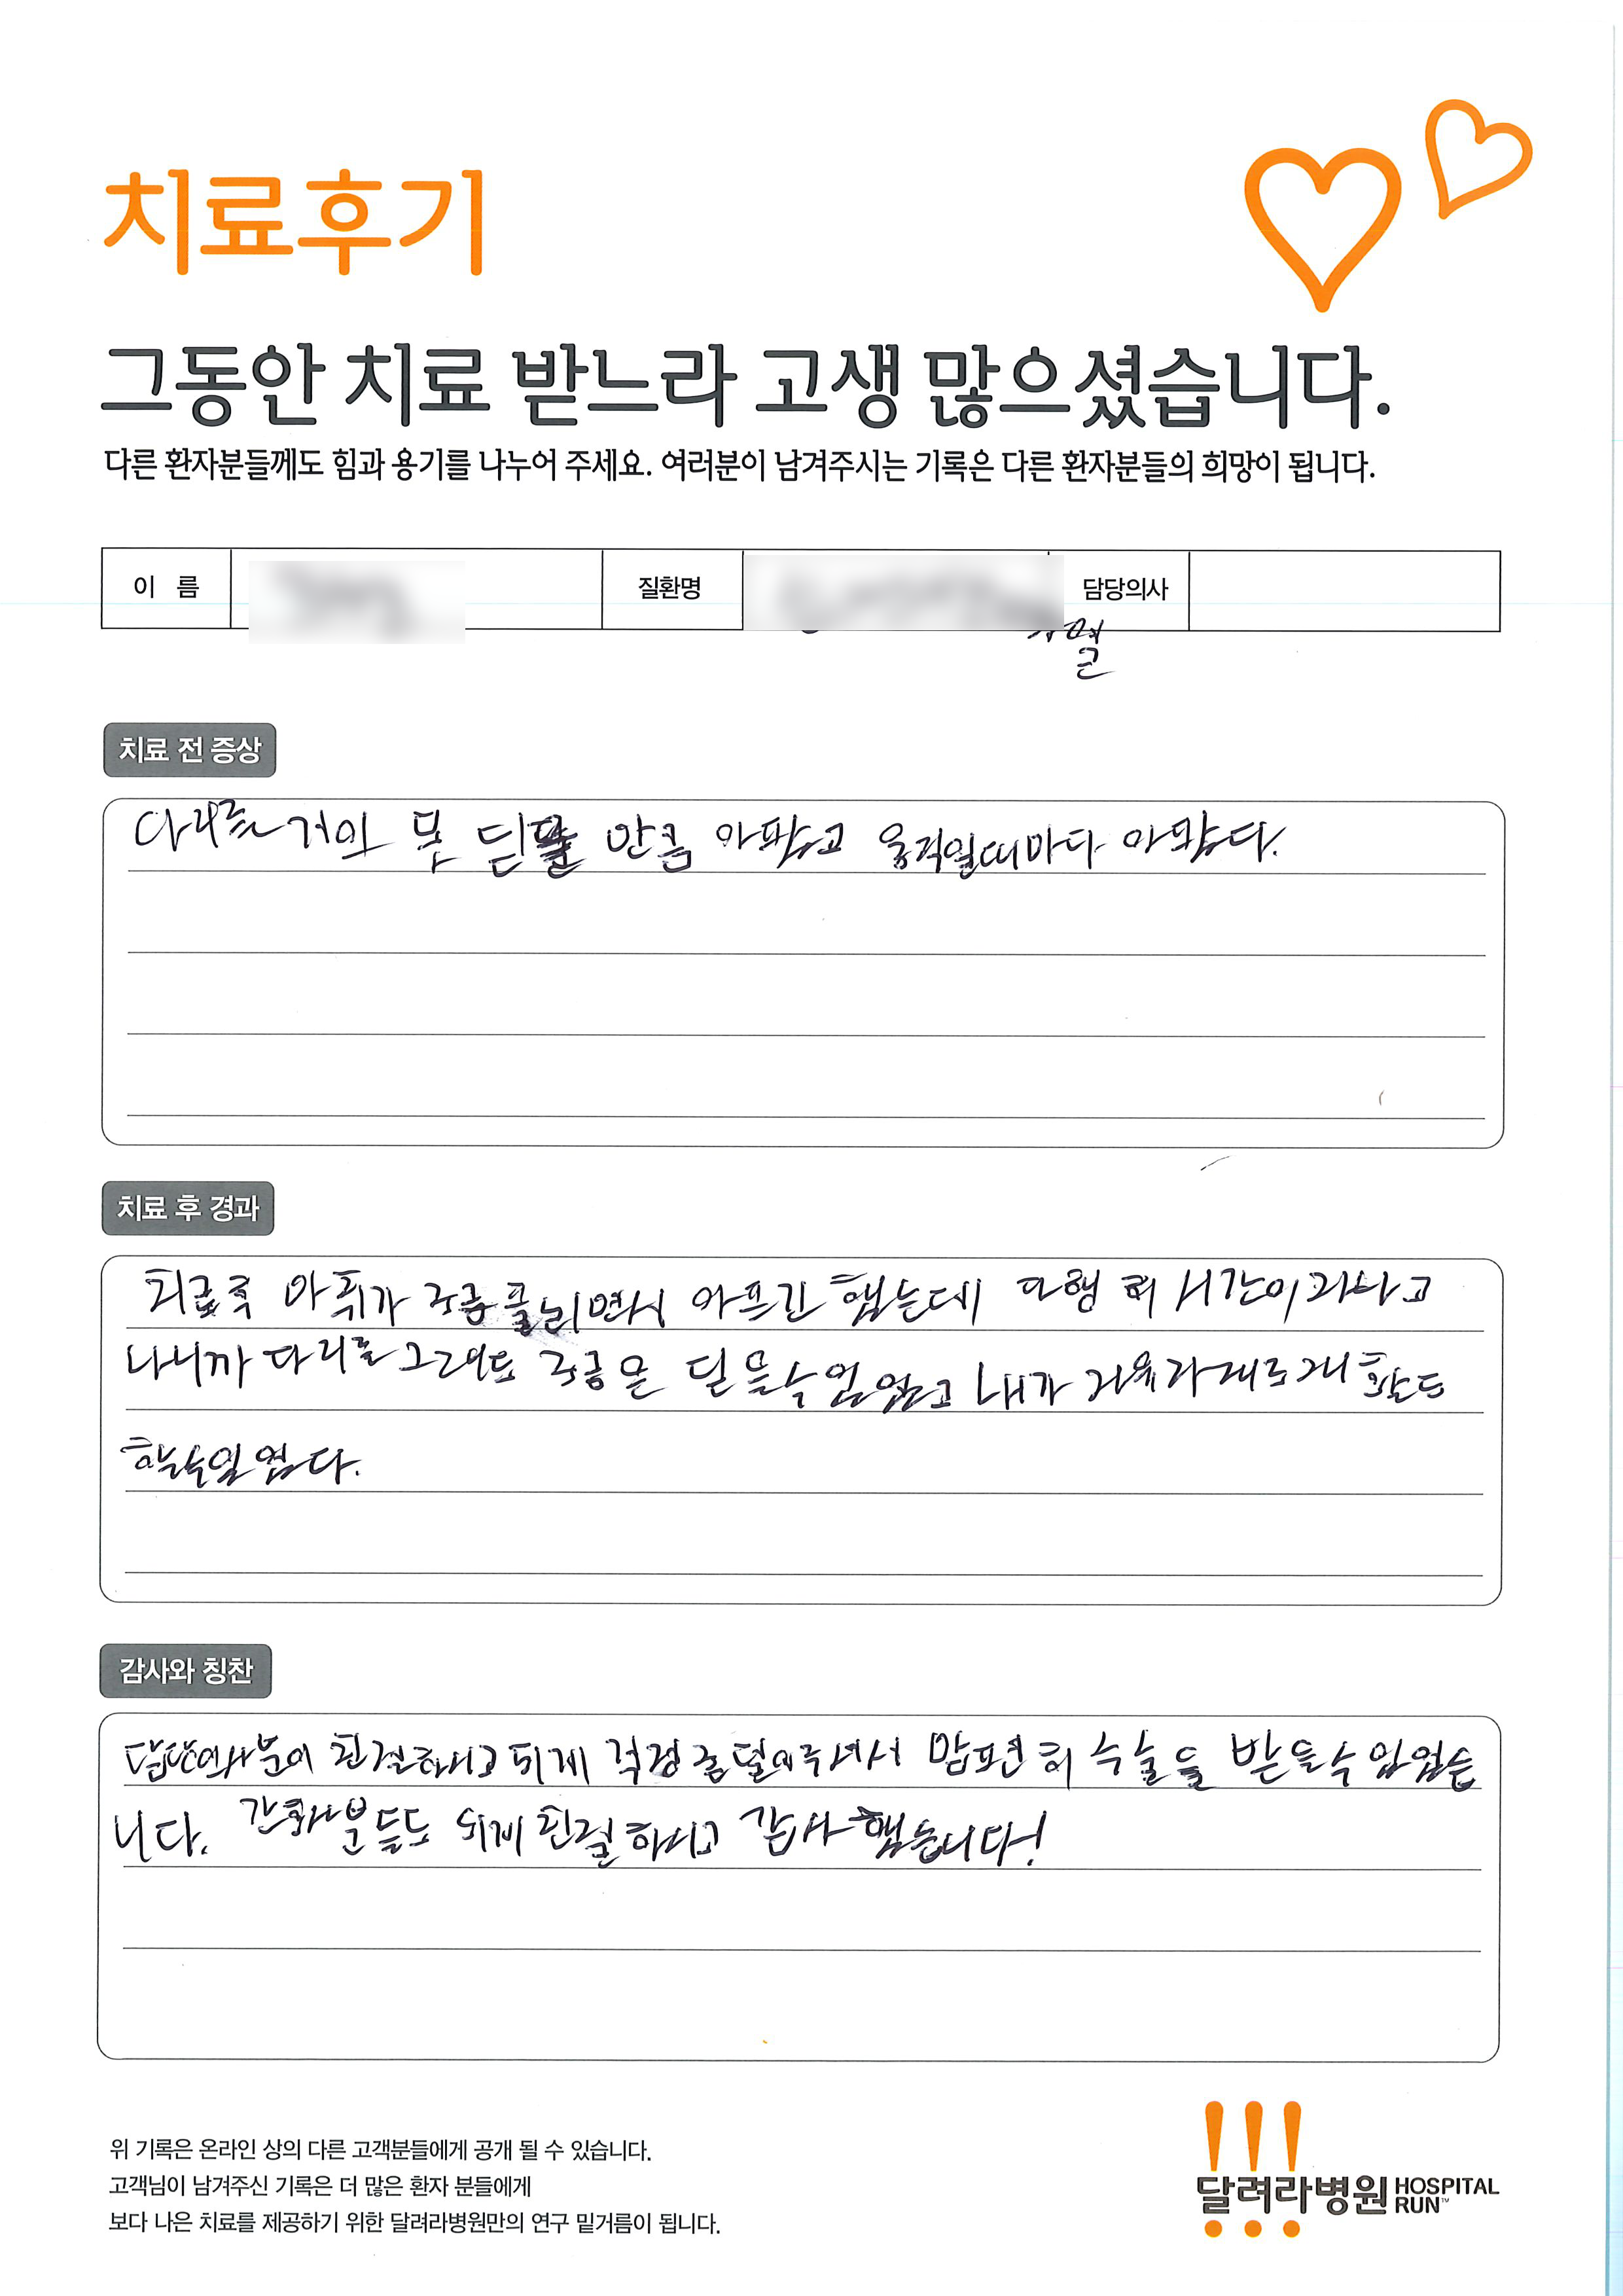 치료후기
그동안 치료 받느라 고생 많으셨습니다.
다른 환자분들께도 힘과 용기를 나누어 주세요. 여러분이 남겨주시는 기록은 다른 환자분들의 희망이 됩니다.
이 름 질환명 담당의사
치료 전 증상
다리를 거의 못 딛을 만큼 아팠고 움직일때마다 아팠다.
치료 후 경과
치료후 마취가 조금 풀리면서 아프긴 했는데 다행히 시간이 지나고
나니까 다리를 그래도 조금은 딛을수 있었고 내가
할수있었다.
감사와 칭찬
담당의사분이 친절하시고 되게 걱정 좀 덜어주셔서 맘편히 수술을 받을수 있었습
니다. 간호사분들도 되게 친절하시고 감사했습니다!
위 기록은 온라인 상의 다른 고객분들에게 공개 될 수 있습니다.
고객님이 남겨주신 기록은 더 많은 환자 분들에게
보다 나은 치료를 제공하기 위한 달려라병원만의 연구 밑거름이 됩니다.
달려라병원 HOSPITAL
RUN™